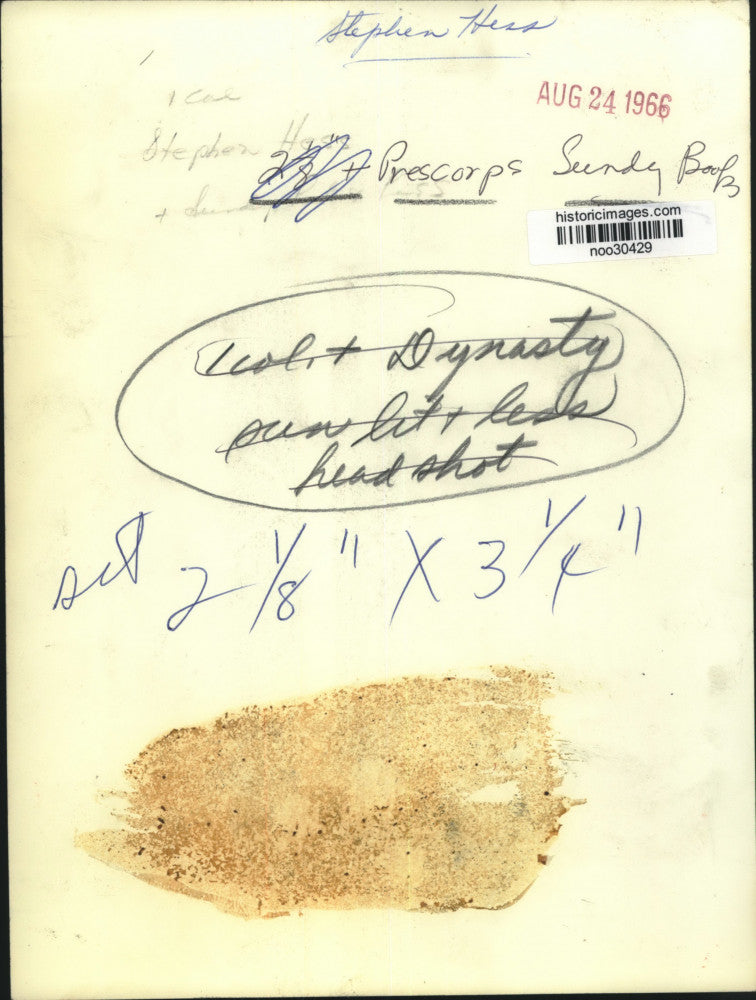 Stephen Hess
AUG 24 1966
1 col
Stephen Hess
+ Prescorps Sundy Books
historicimages.com
noo30429
1 col. + Dynasty
sun lit + less
head shot
set 2 1/8" X 3 1/4"